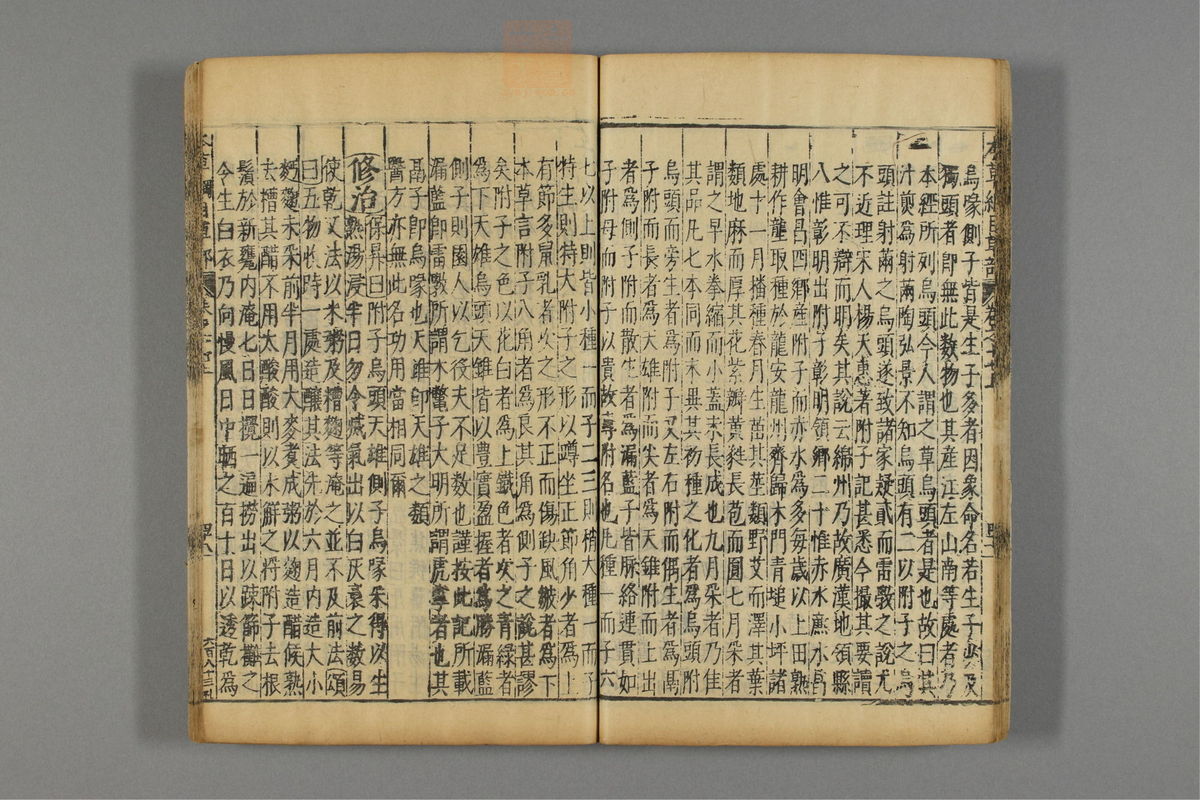 烏喙側子皆是生子多者因象命名若生子少及
獨頭者卽無此數物也其産江左山南等處者乃
本經所列烏頭今人謂之草烏頭者是也故曰其
汁煎爲射罔陶弘景不知烏頭有二以附子之烏
頭註射罔之烏頭遂致諸家疑貳而雷斆之說尤
不近理宋人楊天惠著附子記甚悉今撮其要讀
之可不辯而明矣其說云綿州乃故廣漢地領縣
八惟彰明出附子彰明領鄉二十惟赤水廉水昌
明會昌四鄉産附子而赤水爲多每歲以上田熟
耕作壟取種於龍安龍州齊歸木門青堆小坪諸
處十一月播種春月生苗其莖類野艾而澤其葉
類地麻而厚其花紫瓣黃蕤長苞而圓七月采者
謂之早水拳縮而小蓋未長成也九月采者乃佳
其品凡七本同而末異其初種之化者爲烏頭附
烏頭而旁生者爲附子又左右附而偶生者爲鬲
子附而長者爲天雄附而尖者爲天錐附而上出
者爲側子附而散生者爲漏藍子皆脈絡連貫如
子附母而附子以貴故專附名也凡種一而子六
七以上則皆小種一而子二三則稍大種一而子
特生則特大附子之形以蹲坐正節角少者爲上
有節多鼠乳者次之形不正而傷缺風皺者爲下
本草言附子八角者爲良其角爲側子之說甚謬
矣附子之色以花白者爲上鐵色者次之青綠者
爲下天雄烏頭天錐皆以豐實盈握者爲勝漏藍
側子則園人以乞役夫不足數也謹按此記所載
漏藍卽雷斆所謂木鱉子大明所謂虎掌者也其
鬲子卽烏喙也天雄卽天雄之類
醫方亦無此名功用當相同爾
修治保昇曰附子烏頭天雄側子烏喙采得以生
熟湯浸半日勿令滅氣出以白灰裛之數易
使乾又法以米粥及糟麴等淹之並不及前法頌
曰五物收時一處造釀其法先於六月內造大小
麪麴未采前半月用大麥煮成粥以麴造醋候熟
去糟其醋不用太酸酸則以水解之將附子去根
鬚於新甕內淹七日日攪一遍撈出以疎篩攤之
令生白衣乃向慢風日中曬之百十日以透乾爲